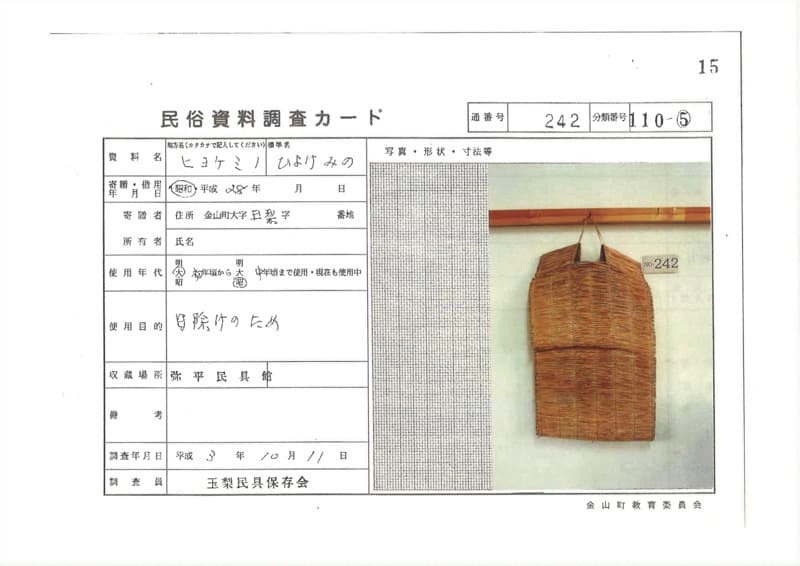 15
民俗資料調査カード
通番号 242 分類番号 110-⑤
資料名 地方名(カタカナで記入してください) 標準名
ヒヨケミノ ひよけみの
写真・形状・寸法等
寄贈・借用年月日 昭和・平成 28年 月 日
寄贈者 住所 金山町大字玉梨字 番地
所有者 氏名
使用年代 明大昭 初年頃から 明大昭 中年頃まで使用・現在も使用中
使用目的 日除けのため
収蔵場所 弥平民具館
備考
調査年月日 平成 3年 10月 11日
調査員 玉梨民具保存会
NO. 242
金山町教育委員会